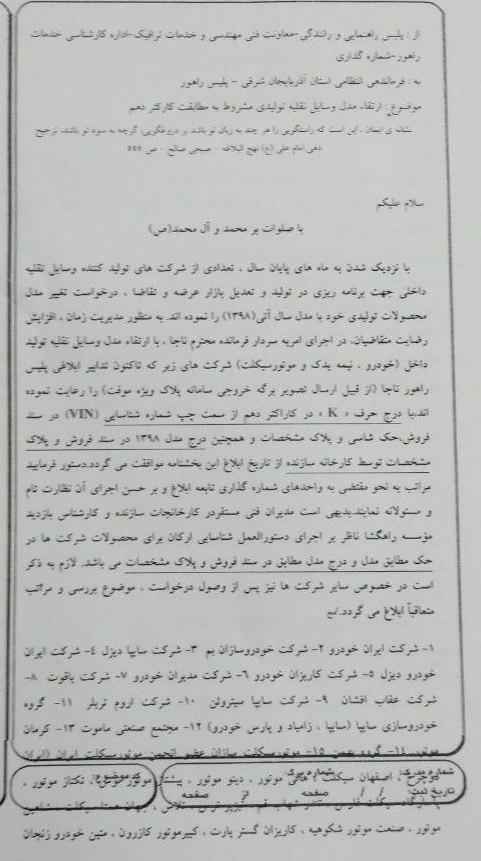 از : پلیس راهنمایی و رانندگی-معاونت فنی مهندسی و خدمات ترافیک-اداره کارشناسی خدمات
راهور-شماره گذاری
به : فرماندهی انتظامی استان آذربایجان شرقی - پلیس راهور
موضوع : ارتقاء مدل وسایل نقلیه تولیدی مشروط به مطابقت کارکتر دهم
نشانه ی ایمان ، این است که راستگویی را هر چند به زیان تو باشد بر دروغگویی، گرچه به سود تو باشد، ترجیح
دهی امام علی (ع) نهج البلاغه - صبحی صالح - ص ۵۵۵
سلام علیکم
با صلوات بر محمد و آل محمد(ص)
با نزدیک شدن به ماه های پایان سال ، تعدادی از شرکت های تولید کننده وسایل نقلیه
داخلی جهت برنامه ریزی در تولید و تعدیل بازار عرضه و تقاضا ، درخواست تغییر مدل
محصولات تولیدی خود با مدل سال آتی(۱۳۹۸) را نموده اند. به منظور مدیریت زمان ، افزایش
رضایت متقاضیان، در اجرای امریه سردار فرمانده محترم ناجا ، با ارتقاء مدل وسایل نقلیه تولید
داخل (خودرو ، نیمه یدک و موتورسیکلت) شرکت های زیر که تاکنون تدابیر ابلاغی پلیس
راهور ناجا (از قبیل ارسال تصویر برگه خروجی سامانه پلاک ویژه موقت) را رعایت نموده
اند،با درج حرف « K » در کاراکتر دهم از سمت چپ شماره شناسایی (VIN) در سند
فروش،حک شاسی و پلاک مشخصات و همچنین درج مدل ۱۳۹۸ در سند فروش و پلاک
مشخصات توسط کارخانه سازنده از تاریخ ابلاغ این بخشنامه موافقت می گردد.دستور فرمایید
مراتب به نحو مقتضی به واحدهای شماره گذاری تابعه ابلاغ و بر حسن اجرای آن نظارت تام
و مسئولانه نمایند.بدیهی است مدیران فنی مستقردر کارخانجات سازنده و کارشناس بازدید
مؤسسه راهگشا ناظر بر اجرای دستورالعمل شناسایی ارکان برای محصولات شرکت ها در
حک مطابق مدل و درج مدل مطابق در سند فروش و پلاک مشخصات می باشد. لازم به ذکر
است در خصوص سایر شرکت ها نیز پس از وصول درخواست ، موضوع بررسی و مراتب
متعاقباً ابلاغ می گردد.
۱- شرکت ایران خودرو ۲- شرکت خودروسازان بم ۳- شرکت سایپا دیزل ٤- شرکت ایران
خودرو دیزل ۵- شرکت کاریزان خودرو ۶- شرکت مدیران خودرو ۷- شرکت یاقوت ۸-
شرکت عقاب افشان ۹- شرکت سایپا سیتروئن ۱۰- شرکت اروم تریلر ۱۱- گروه
خودروسازی سایپا (سایپا ، زامیاد و پارس خودرو) ۱۲- مجتمع صنعتی ماموت ۱۳- کرمان
موتور ۱٤- گروه بهمن ۱۵- موتورسیکلت سازان عضو انجمن موتورسیکلت ایران (ایران
اصفهان سیکلت ، موتور ، دینو موتور ، موتور ، تکتاز موتور ،
موتور ، صنعت موتور شکوهیه ، کاریزان گستر پارت ، کبیرموتور کازرون ، متین خودرو زنجان
شماره مدرک:
تاریخ ثبت: / / صفحه از صفحه